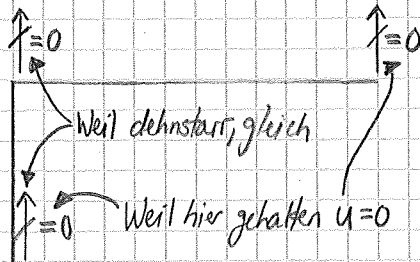 =0 =0
Weil dehnstarr, gleich
=0 Weil hier gehalten u=0